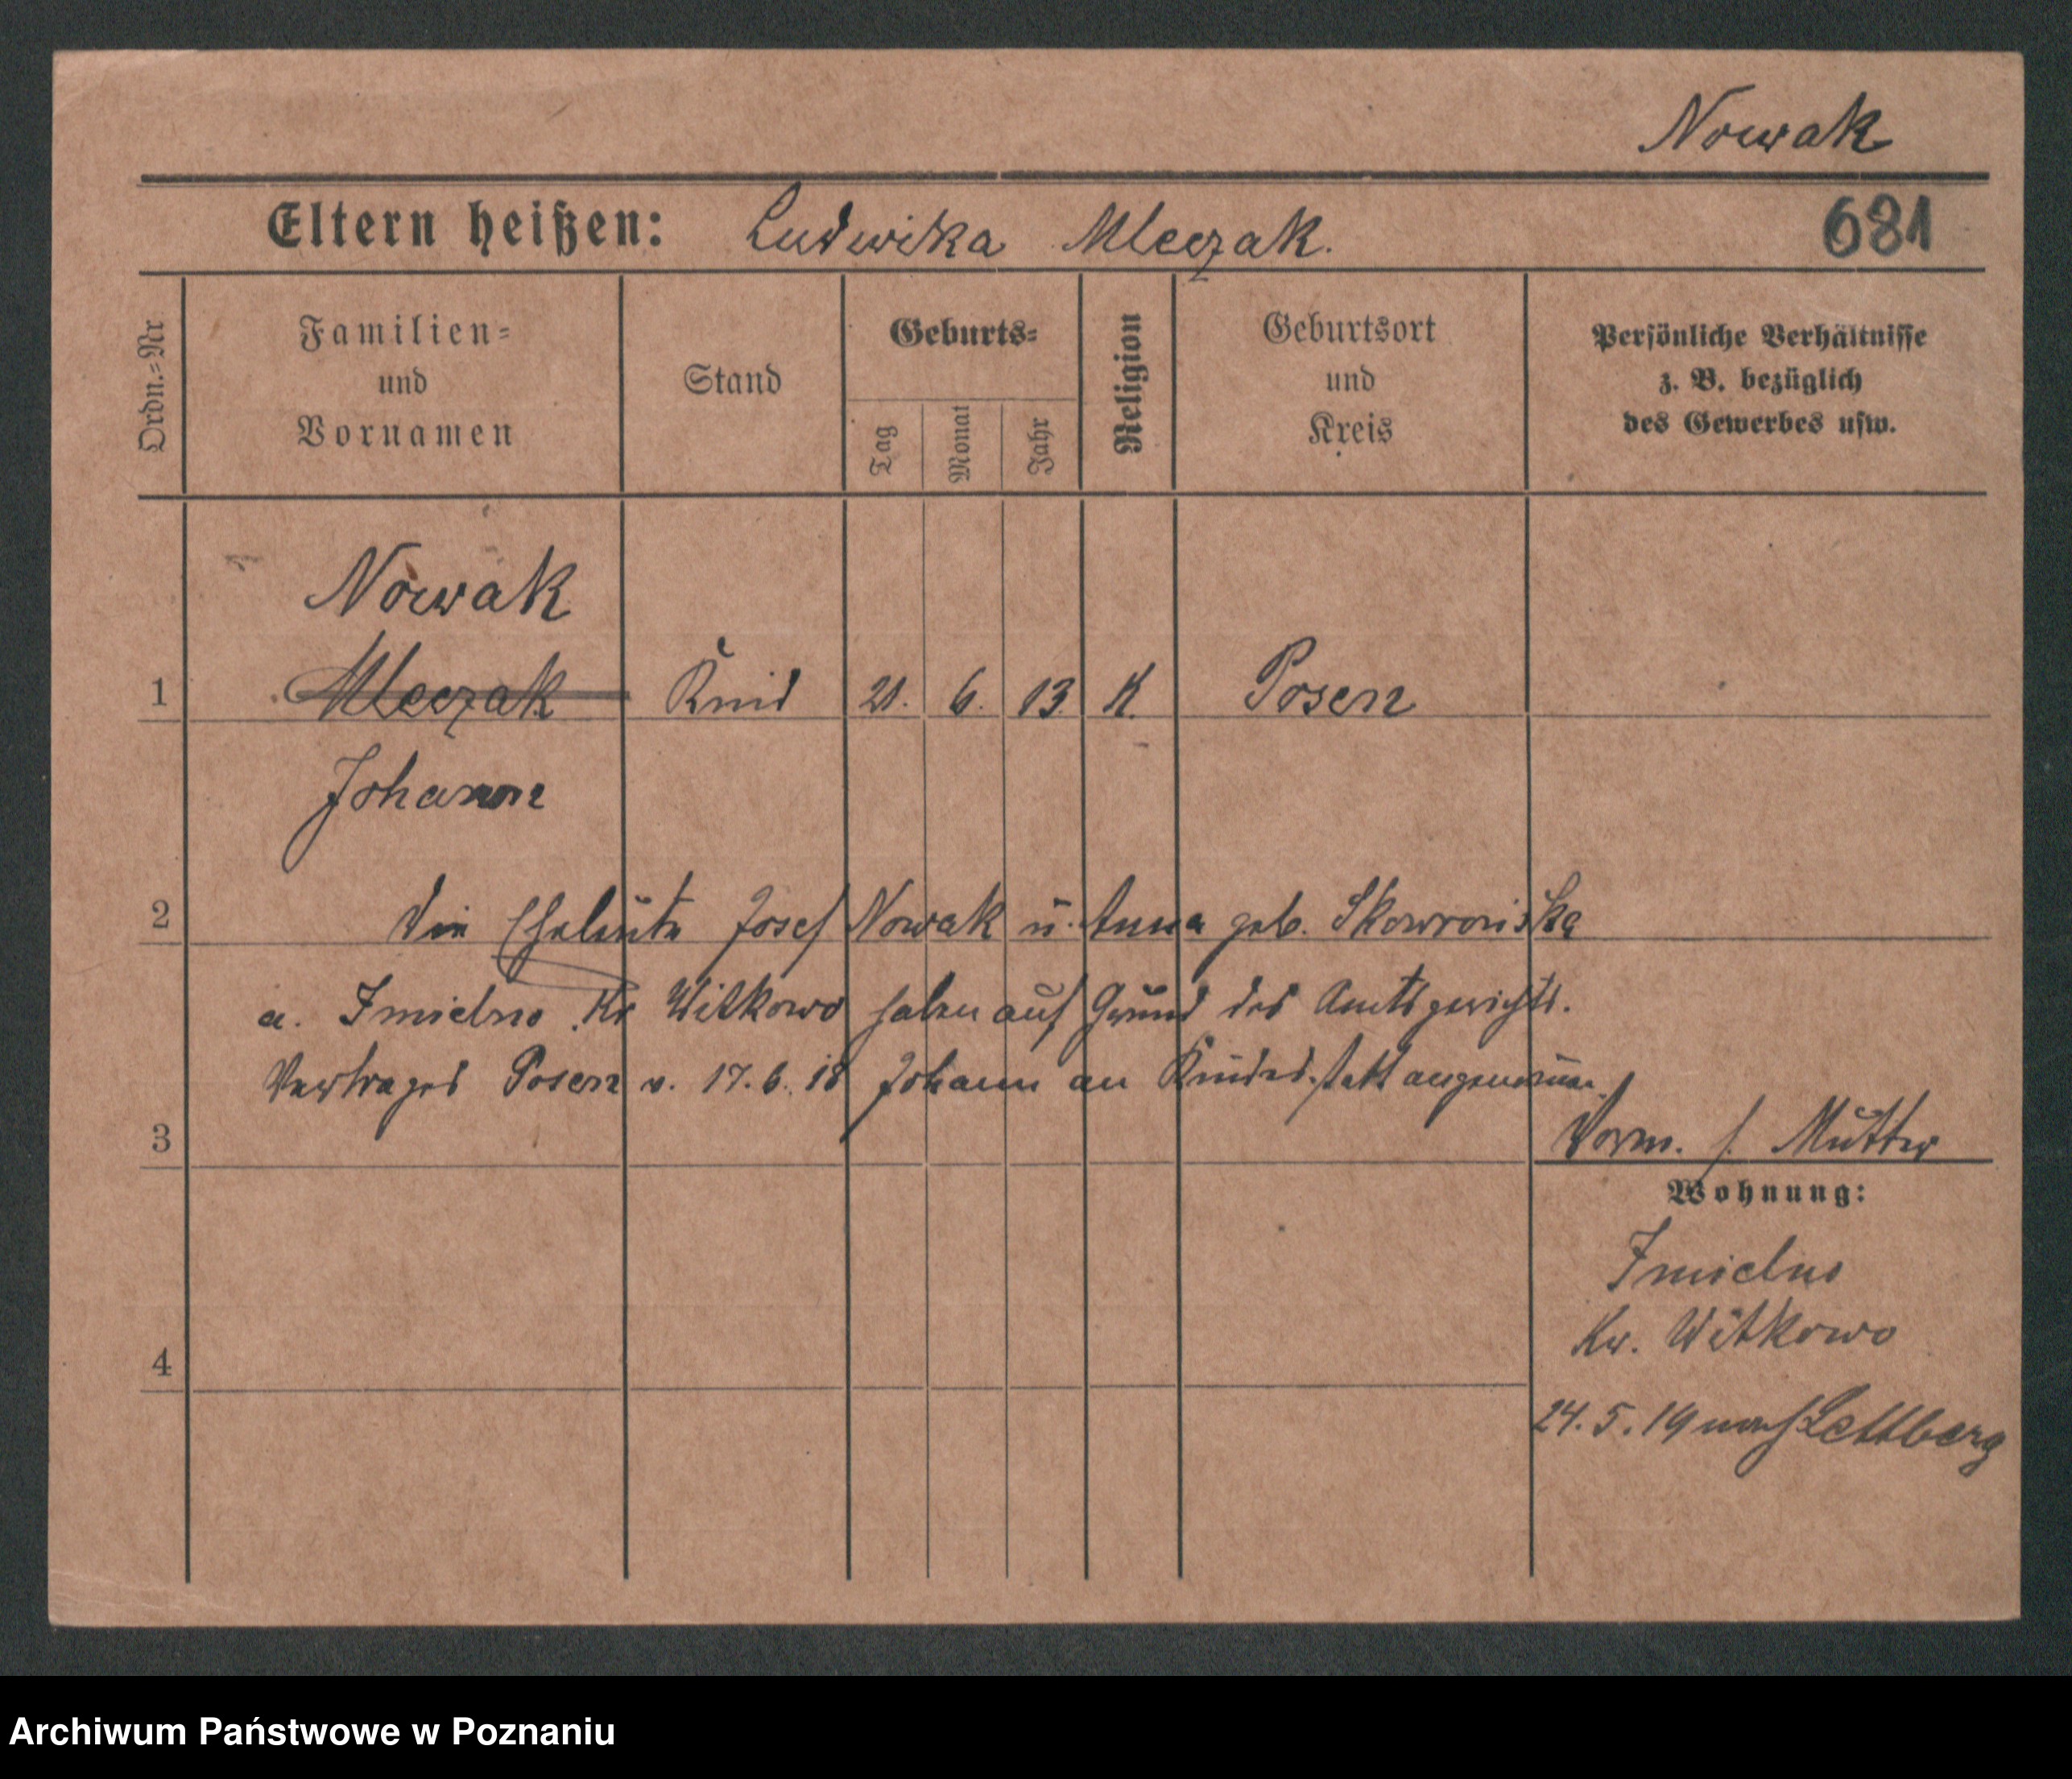 Nowak
Eltern heißen: Ludwika Mleczak. 681
Ordn.=Nr
Familien=
und
Vornamen
Stand
Geburts=
Tag
Monat
Jahr
Religion
Geburtsort
und
Kreis
Persönliche Verhältnisse
z. B. bezüglich
des Gewerbes usw.
Nowak
1 Mleczak Kind 21. 6. 13. K. Posen
Johann
2 Die Eheleute Josef Nowak u. Anna geb. Skowrońska
a. Imielno Kr Witkowo haben auf Grund des Amtsgerichts.
Vertrages Posen v. 17.6.18 Johann an Kindesstatt angenommen.
3 Vorm. s. Mutter
Wohnung:
Imielno
Kr. Witkowo
4
24.5.19 nach Lettberg
Archiwum Państwowe w Poznaniu